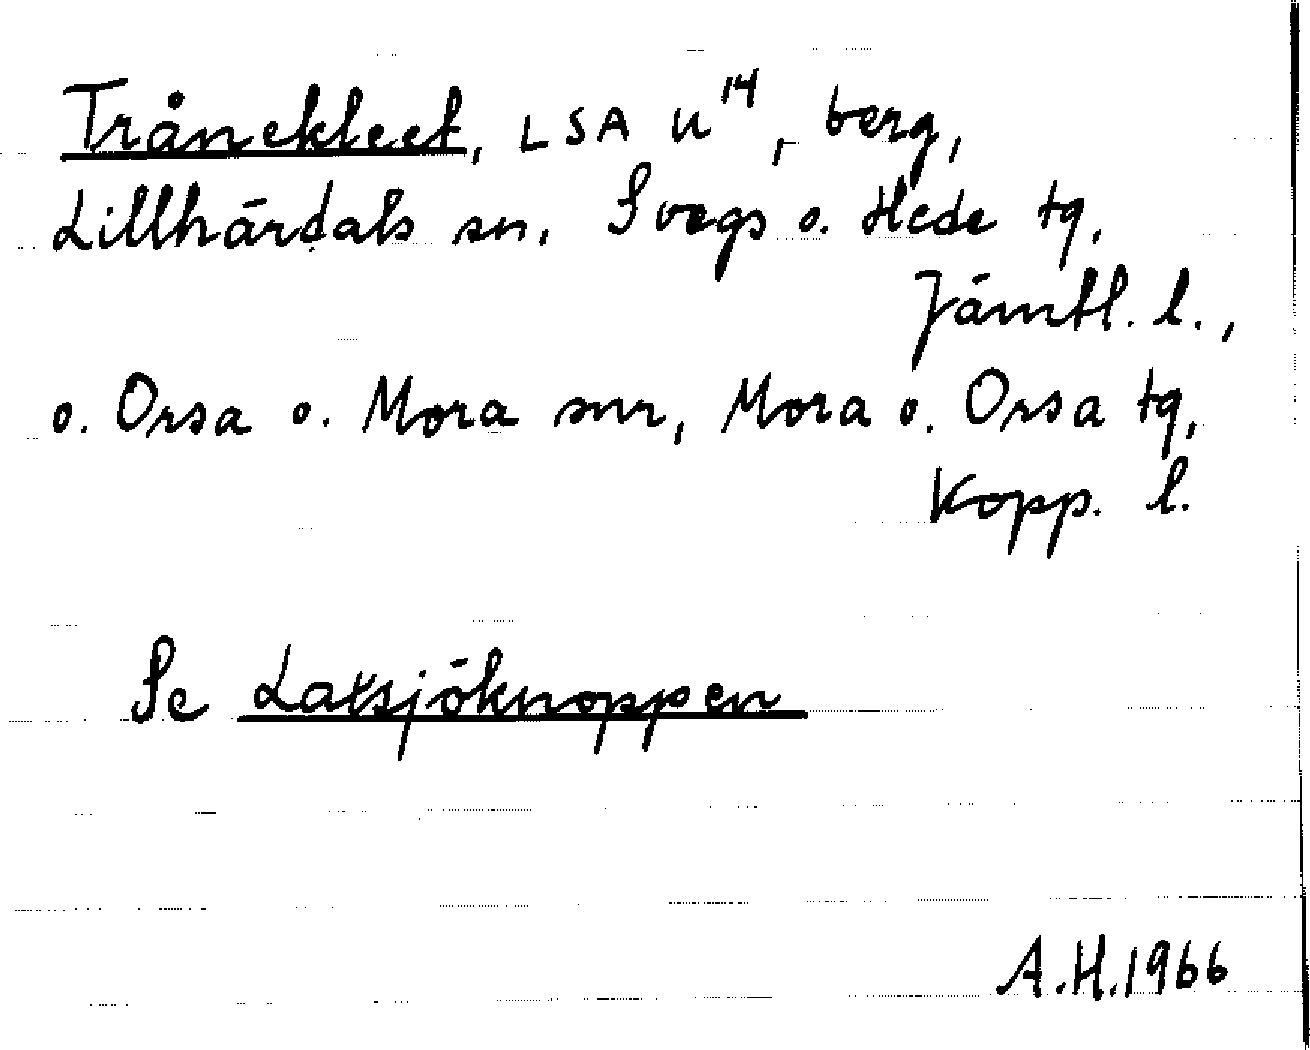 Trånekleet, LSA U¹⁴, berg,
Lillhärdals sn, Svegs o. Hede tg,
Jämtl. l.,
o. Orsa o. Mora snr, Mora o. Orsa tg,
Kopp. l.
Se Latsjöknoppen
A.H.1966